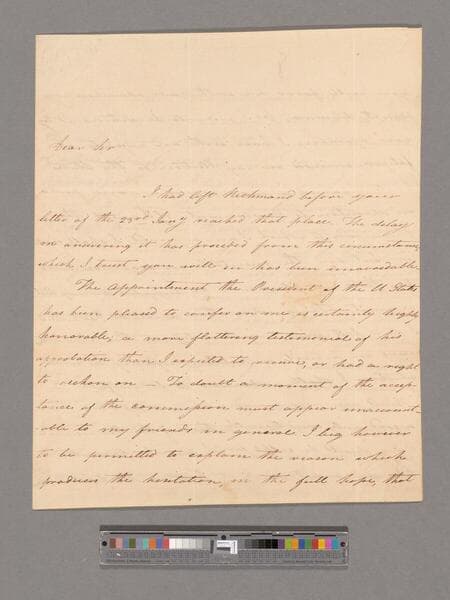 Dear Sir
I had left Richmond before your
letter of the 23rd Jany reached that place. The delay
in answering it has proceded from this circumstance
which I trust you will has been unavoidable.
The Appointment the President of the U States
has been pleased to confer on me is certainly highly
honorable, a more flattering testimonial of his
approbation than I expected to receive, or had a right
to reckon on — To doubt a moment of the accep-
tance of the commission must appear unaccount-
able to my friends in general I beg however
to be permitted to explain the reason which
produces the hesitation, in the full hope, that